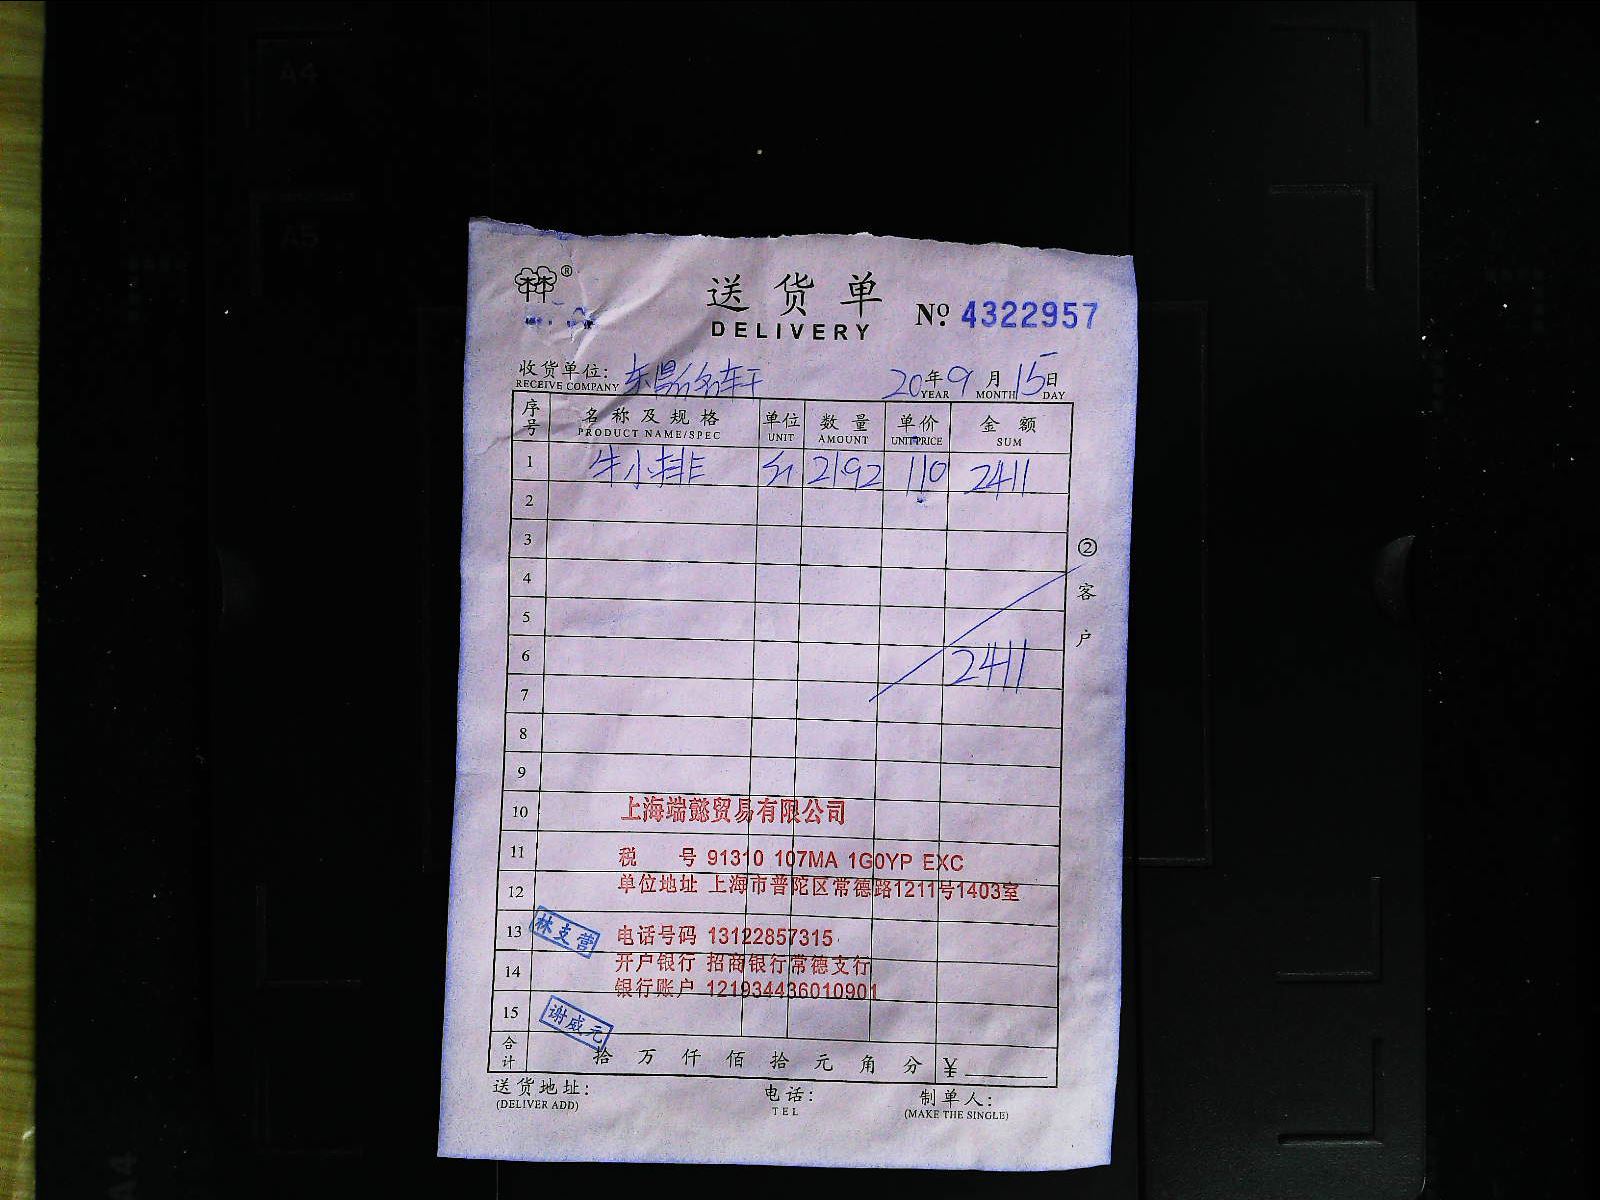 A4
A5
林®
送货单
DELIVERY
№ 4322957
收货单位:
RECEIVE COMPANY
20年9月15日
YEAR MONTH DAY
序号 名称及规格 单位 数量 单价 金额
PRODUCT NAME/SPEC UNIT AMOUNT UNIT PRICE SUM
1 牛小排 斤 21.92 110 2411
2
3
4
5
6 2411
7
8
9
10
11
12
13
14
15
②客户
上海端懿贸易有限公司
税 号 91310 107MA 1G0YP EXC
单位地址 上海市普陀区常德路1211号1403室
电话号码 13122857315
开户银行 招商银行常德支行
银行账户 121934436010901
林支营
谢威元
合计 拾 万 仟 佰 拾 元 角 分 ¥
送货地址: 电话: 制单人:
(DELIVER ADD) TEL (MAKE THE SINGLE)
A4